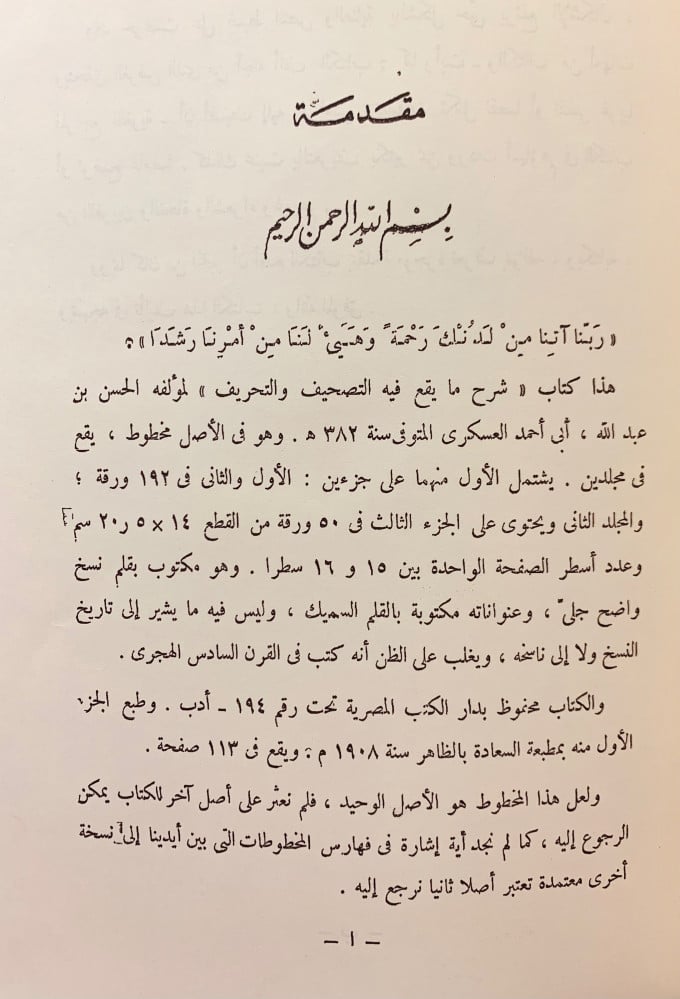 مقدمة
بسم الله الرحمن الرحيم
« رَبَّنا آتِنا مِنْ لَدُنْكَ رَحْمَةً وَهَيِّئْ لَنَا مِنْ أَمْرِنَا رَشَدَا » :
هذا كتاب « شرح ما يقع فيه التصحيف والتحريف » لمؤلفه الحسن بن
عبد الله ، أبى أحمد العسكرى المتوفى سنة ٣٨٢ ه . وهو فى الأصل مخطوط ، يقع
فى مجلدين . يشتمل الأول منهما على جزءين : الأول والثانى فى ١٩٢ ورقة ؛
والمجلد الثانى ويحتوى على الجزء الثالث فى ٥٠ ورقة من القطع ١٤ × ٥ ر٢٠ سم
وعدد أسطر الصفحة الواحدة بين ١٥ و ١٦ سطرا . وهو مكتوب بقلم نسخ
واضح جلىّ ، وعنواناته مكتوبة بالقلم السميك ، وليس فيه ما يشير إلى تاريخ
النسخ ولا إلى ناسخه ، ويغلب على الظن أنه كتب فى القرن السادس الهجرى .
والكتاب محفوظ بدار الكتب المصرية تحت رقم ١٩٤ - أدب . وطبع الجزء
الأول منه بمطبعة السعادة بالظاهر سنة ١٩٠٨ م ؛ ويقع فى ١١٣ صفحة .
ولعل هذا المخطوط هو الأصل الوحيد ، فلم نعثر على أصل آخر للكتاب يمكن
الرجوع إليه ، كما لم نجد أية إشارة فى فهارس المخطوطات التى بين أيدينا إلى نسخة
أخرى معتمدة تعتبر أصلا ثانيا نرجع إليه .
- ١ -